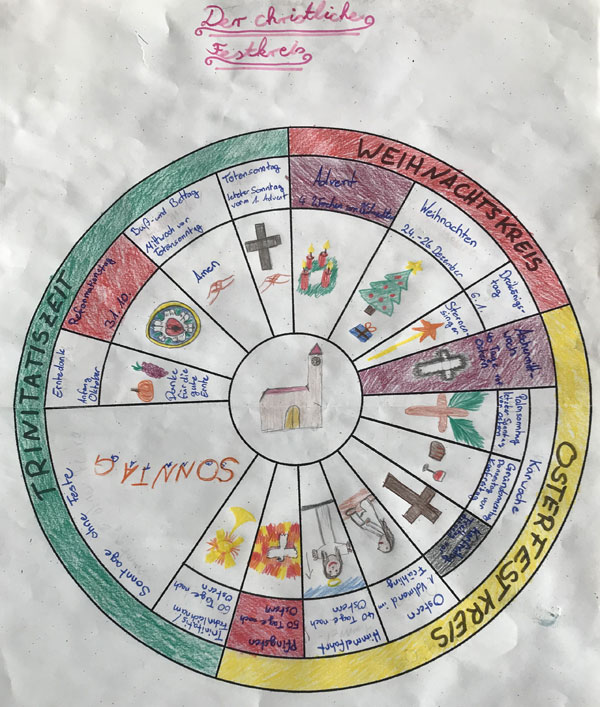 Der christliche
Festkreis
WEIHNACHTSKREIS
Advent
Weihnachten
24.-26. Dezember
Dreikönigs-
tag
6.1.
Sternen
singer
OSTERFESTKREIS
Palmsonntag
letzter Sonntag
vor Ostern
Karwoche
Gründonnerstag
Donnerstag vor
Ostern
1. Vollmond im
Frühling
Himmelfahrt
40 Tage nach
Ostern
Pfingsten
50 Tage nach
Ostern
TRINITATISZEIT
Trinitatis/
Fronleichnam
60 Tage nach
Ostern
Sonntage ohne Feste
SONNTAG
Erntedank
Anfang
Oktober
Danke
für die
gute
Ernte
Reformationstag
31.10.
Buß- und Bettag
Mittwoch vor
Totensonntag
Amen
Totensonntag
letzter Sonntag
vorm 1. Advent